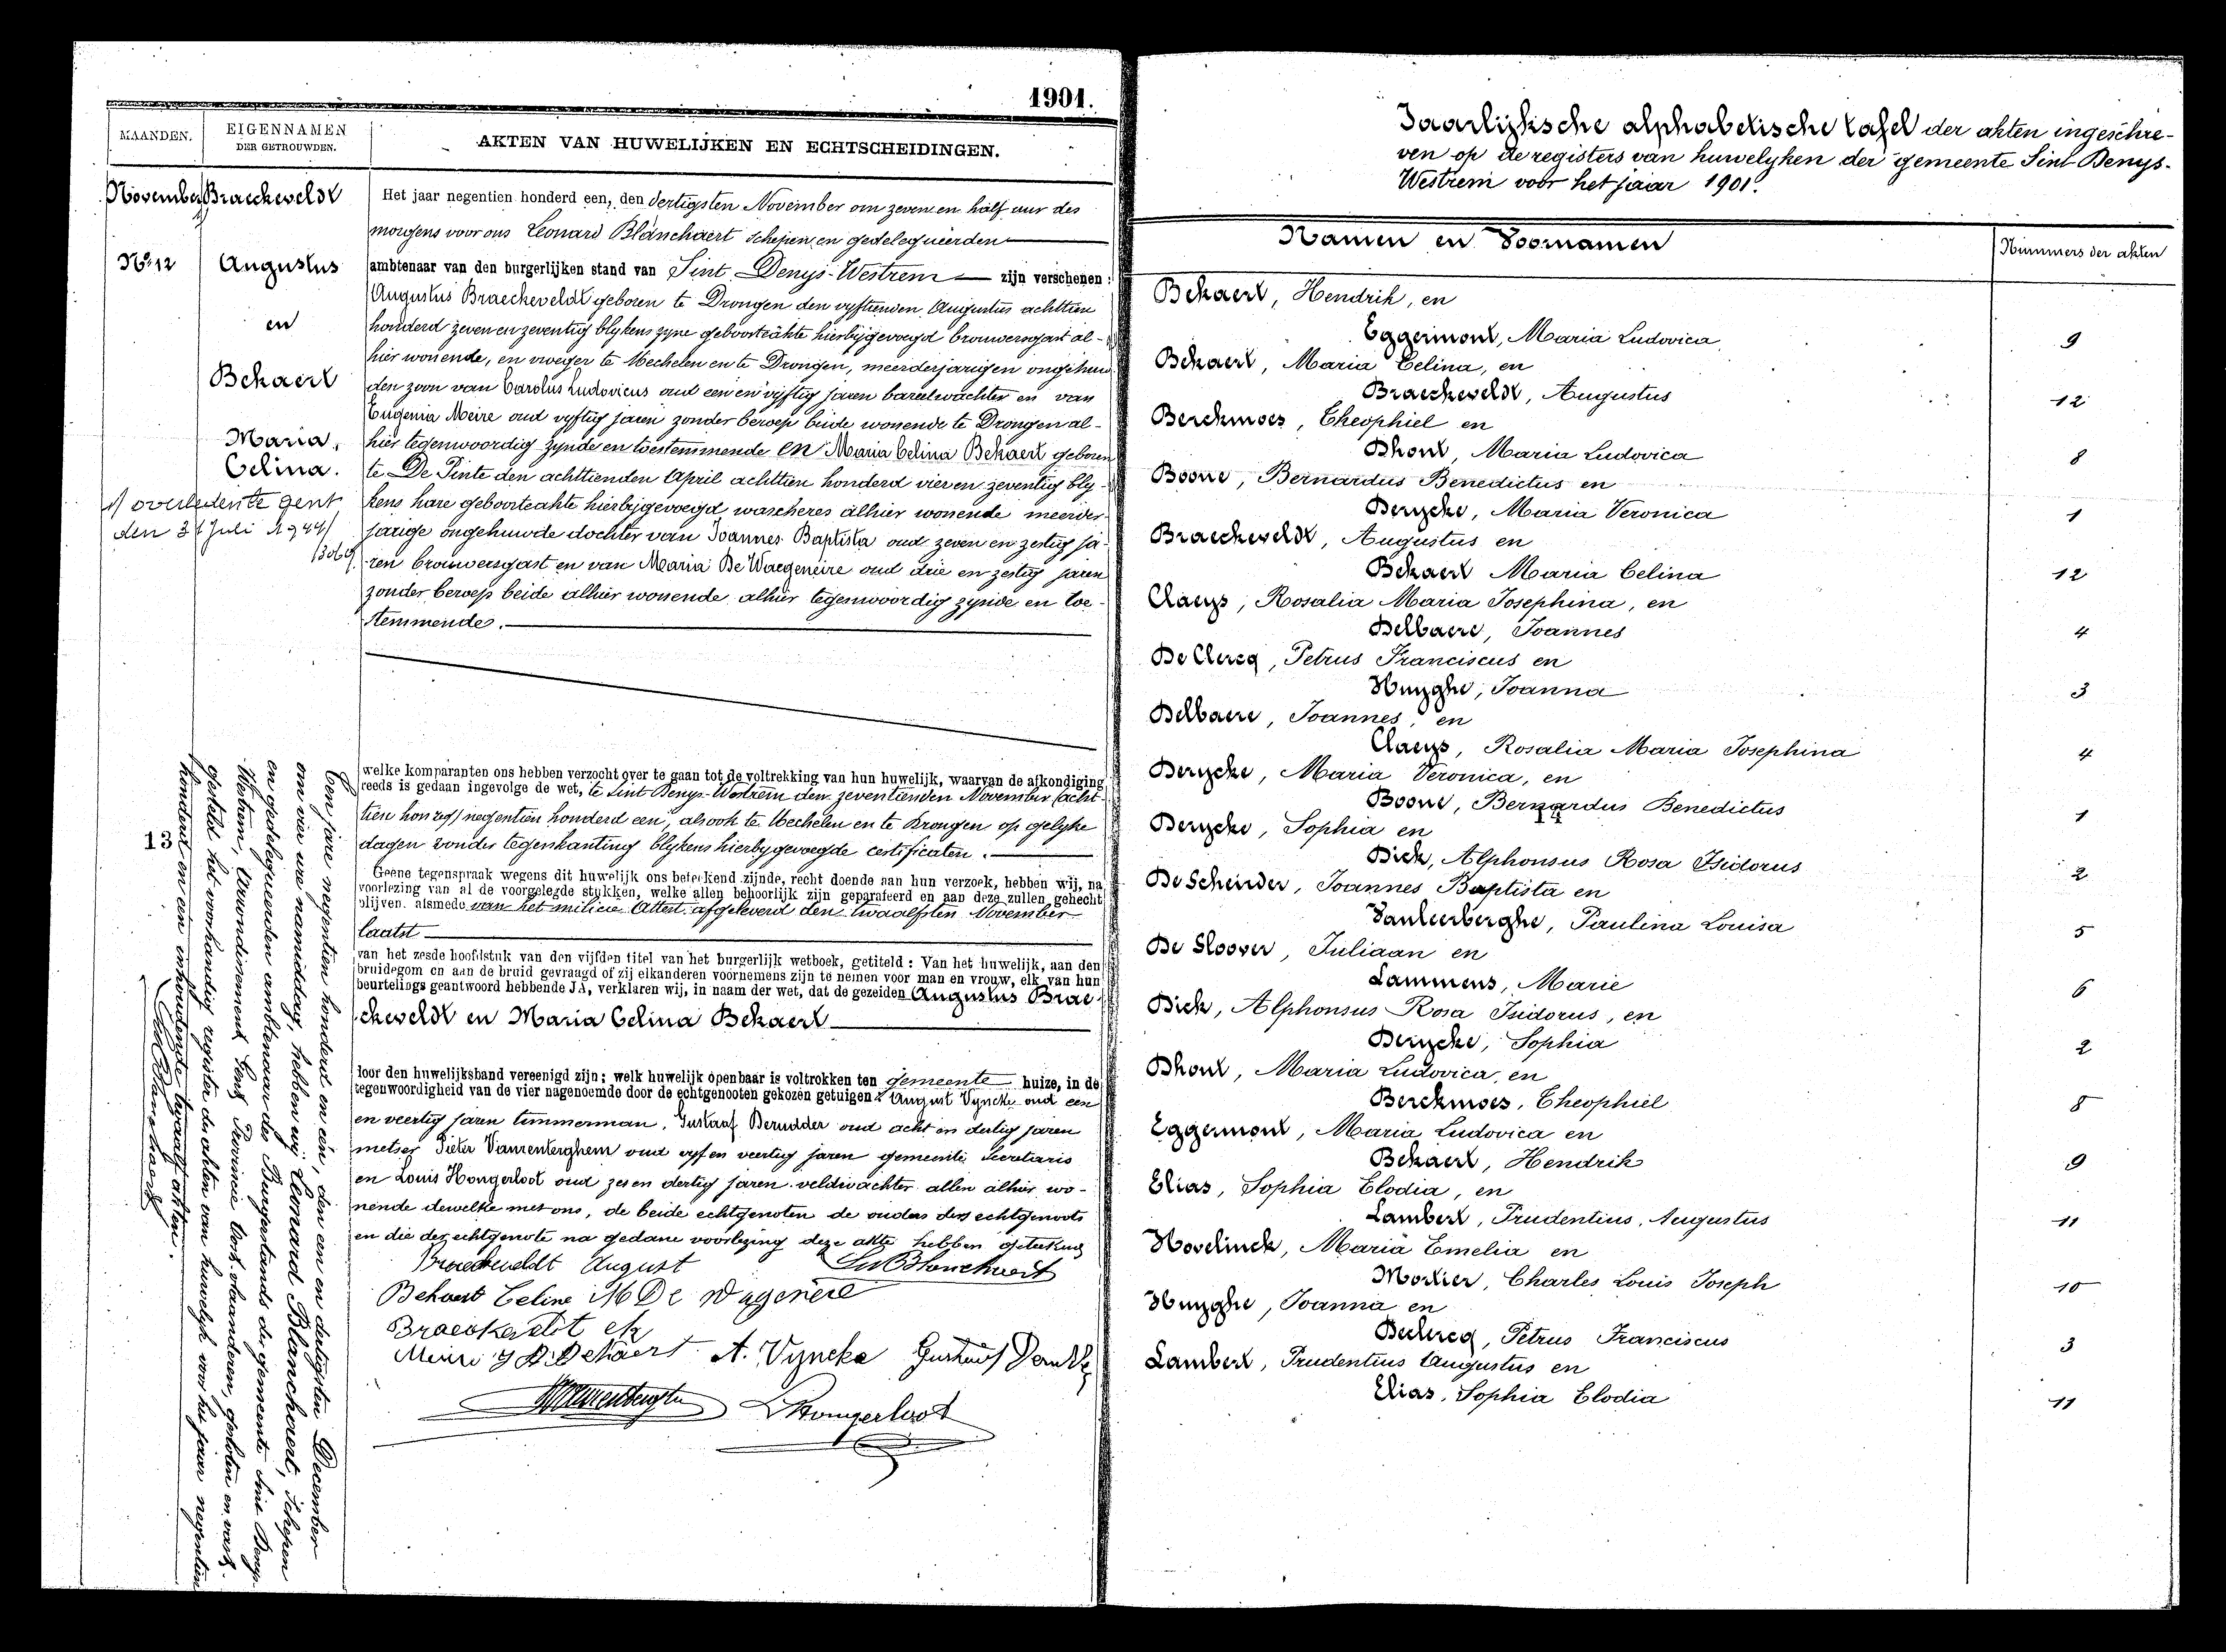 1901.
MAANDEN.
EIGENNAMEN
DER GETROUWDEN.
AKTEN VAN HUWELIJKEN EN ECHTSCHEIDINGEN.
November
Braeckeveldt
No 12
Augustus
en
Bekaert
Maria,
Celina.
overleden te Gent
den 31 Juli 1944
Het jaar negentien honderd een, den dertigsten November om zeven en half uur des
morgens voor ons Leonard Blanchaert schepen en gedelegueerden
ambtenaar van den burgerlijken stand van Sint Denys-Westrem zijn verschenen :
Augustus Braeckeveldt geboren te Drongen den vyftienden Augustus achttien
honderd zeven en zeventig blykens zyne geboorteakte hierbijgevoegd brouwersgast al-
hier wonende, en vroeger te Mechelen en te Drongen, meerderjarigen ongehuw
den zoon van Carolus Ludovicus oud een en vyftig jaren bareelwachter en van
Eugenia Meire oud vyftig jaren zonder beroep beide wonende te Drongen al-
hier tegenwoordig zynde en toestemmende en Maria Celina Bekaert geboren
te De Pinte den achttienden April achttien honderd vier en zeventig bly-
kens hare geboorteakte hierbijgevoegd wascheres alhier wonende meerder-
jarige ongehuwde dochter van Joannes Baptista oud zeven en zestig ja-
ren brouwersgast en van Maria De Waegeneire oud drie en zestig jaren
zonder beroep beide alhier wonende alhier tegenwoordig zynde en toe-
stemmende.
welke komparanten ons hebben verzocht over te gaan tot de voltrekking van hun huwelijk, waarvan de afkondiging
reeds is gedaan ingevolge de wet, te Sint Denys-Westrem den zeventienden November (acht-
tien hon negentien honderd een, alsook te Mechelen en te Drongen op gelyke
dagen zonder tegenkanting blykens hierbygevoegde certificaten.
Geene tegenspraak wegens dit huwelijk ons beteekend zijnde, recht doende aan hun verzoek, hebben wij, na
voorlezing van al de voorgelegde stukken, welke allen behoorlijk zijn geparafeerd en aan deze zullen gehecht
blijven. alsmede van het milicie Attest afgeleverd den twaalfsten November
laatst
van het zesde hoofdstuk van den vijfden titel van het burgerlijk wetboek, getiteld : Van het huwelijk, aan den
bruidegom en aan de bruid gevraagd of zij elkanderen voornemens zijn te nemen voor man en vrouw, elk van hun
beurtelings geantwoord hebbende JA, verklaren wij, in naam der wet, dat de gezeiden Augustus Brae-
ckeveldt en Maria Celina Bekaert
door den huwelijksband vereenigd zijn; welk huwelijk openbaar is voltrokken ten gemeente huize, in de
tegenwoordigheid van de vier nagenoemde door de echtgenooten gekozen getuigen : August Vyncke oud een
en veertig jaren timmerman, Gustaaf Derudder oud acht en dertig jaren
metser Pieter Vanrenterghem oud vyf en veertig jaren gemeente secretaris
en Louis Hongerloot oud zes en dertig jaren veldwachter allen alhier wo-
nende dewelke met ons, de beide echtgenoten de ouders des echtgenoots
en die der echtgenote na gedane voorlezing deze akte hebben geteekend
Braeckeveldt August
Bekaert Celine M De Wagenere
A. Vyncke
L Hongerloot
13
Ten jare negentien honderd en eén, den een en dertigsten December
om vier ure namiddag, hebben wij Leonard Blanchaert, Schepen
en gedelegueerden ambtenaar des Burgerstands der gemeente Sint Denys-
Westrem, Arrondissement Gent, Provincie Oost-vlaanderen, gesloten en vast-
gesteld het voorhandig register der akten van huwelyk voor het jaar negentien
honderd en een inhoudende twaalf akten.
Jaarlijksche alphabetische tafel der akten ingeschre-
ven op de registers van huwelyken der gemeente Sint Denys-
Westrem voor het jaar 1901.
Namen en Voornamen
Nummers der akten
Bekaert, Hendrik, en
Eggermont, Maria Ludovica 9
Bekaert, Maria Celina, en
Braeckeveldt, Augustus 12
Berckmoes, Theophiel en
Dhont, Maria Ludovica 8
Boone, Bernardus Benedictus en
Derycke, Maria Veronica 1
Braeckeveldt, Augustus en
Bekaert Maria Celina 12
Claeys, Rosalia Maria Josephina, en
Delbaere, Joannes 4
De Clercq, Petrus Franciscus en
Huyghe, Joanna 3
Delbaere, Joannes, en
Claeys, Rosalia Maria Josephina 4
Derycke, Maria Veronica, en
Boone, Bernardus Benedictus 1
Derycke, Sophia en
Dick, Alphonsus Rosa Isidorus 2
De Scheirder, Joannes Baptista en
Vanleerberghe, Paulina Louisa 5
De Sloover, Juliaan en
Lammens, Marie 6
Dick, Alphonsus Rosa Isidorus, en
Derycke, Sophia 2
Dhont, Maria Ludovica, en
Berckmoes, Theophiel 8
Eggermont, Maria Ludovica en
Bekaert, Hendrik 9
Elias, Sophia Elodia, en
Lambert, Prudentius, Augustus 11
Hovelinck, Maria Emelia en
Mortier, Charles Louis Joseph 10
Huyghe, Joanna en
Declercq, Petrus Franciscus 3
Lambert, Prudentius Augustus en
Elias, Sophia Elodia 11